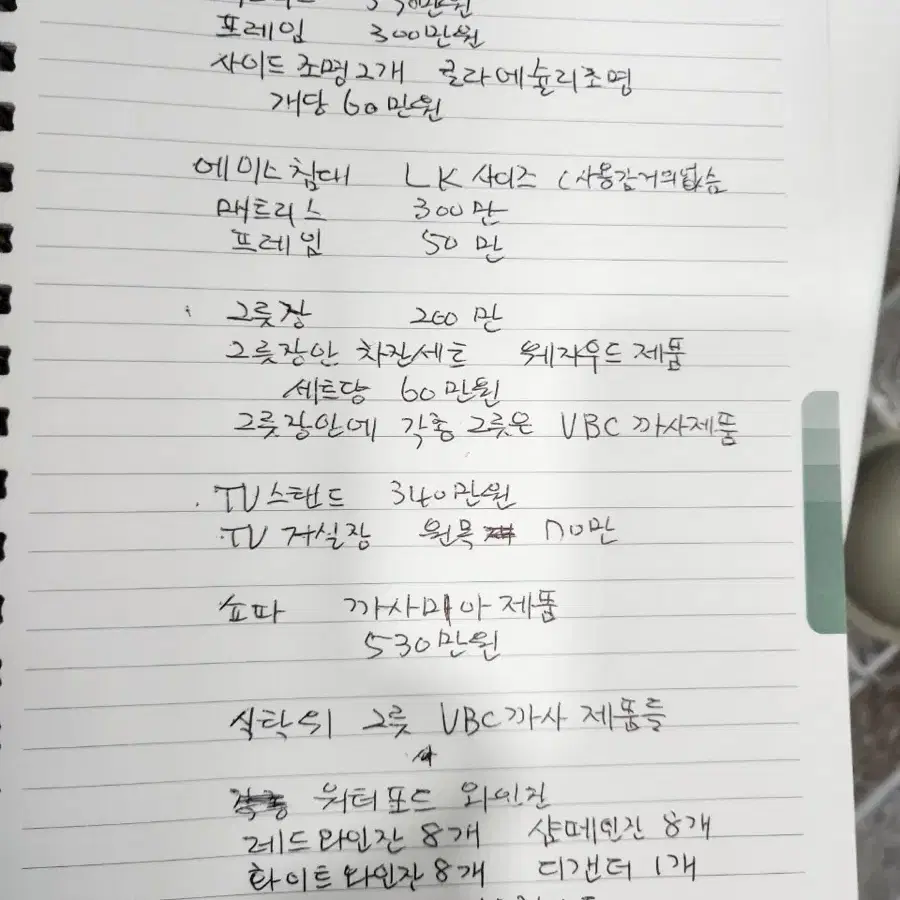 프레임 300만원
사이드 조명 2개 콜라에슐리조명
개당 60만원
에이스침대 LK 사이즈 (사용감거의없슴
매트리스 300만
프레임 50만
그릇장 200만
그릇장안 찻잔세트 웨자우드 제품
세트당 60만원
그릇장안에 각종 그릇은 VBC 까사제품
TV스탠드 340만원
TV 거실장 원목 70만
쇼파 까사미아제품
530만원
식탁위 그릇 VBC까사 제품들
워터포드 와인잔
레드와인잔 8개 샴페인잔 8개
화이트와인잔 8개 디캔더 1개